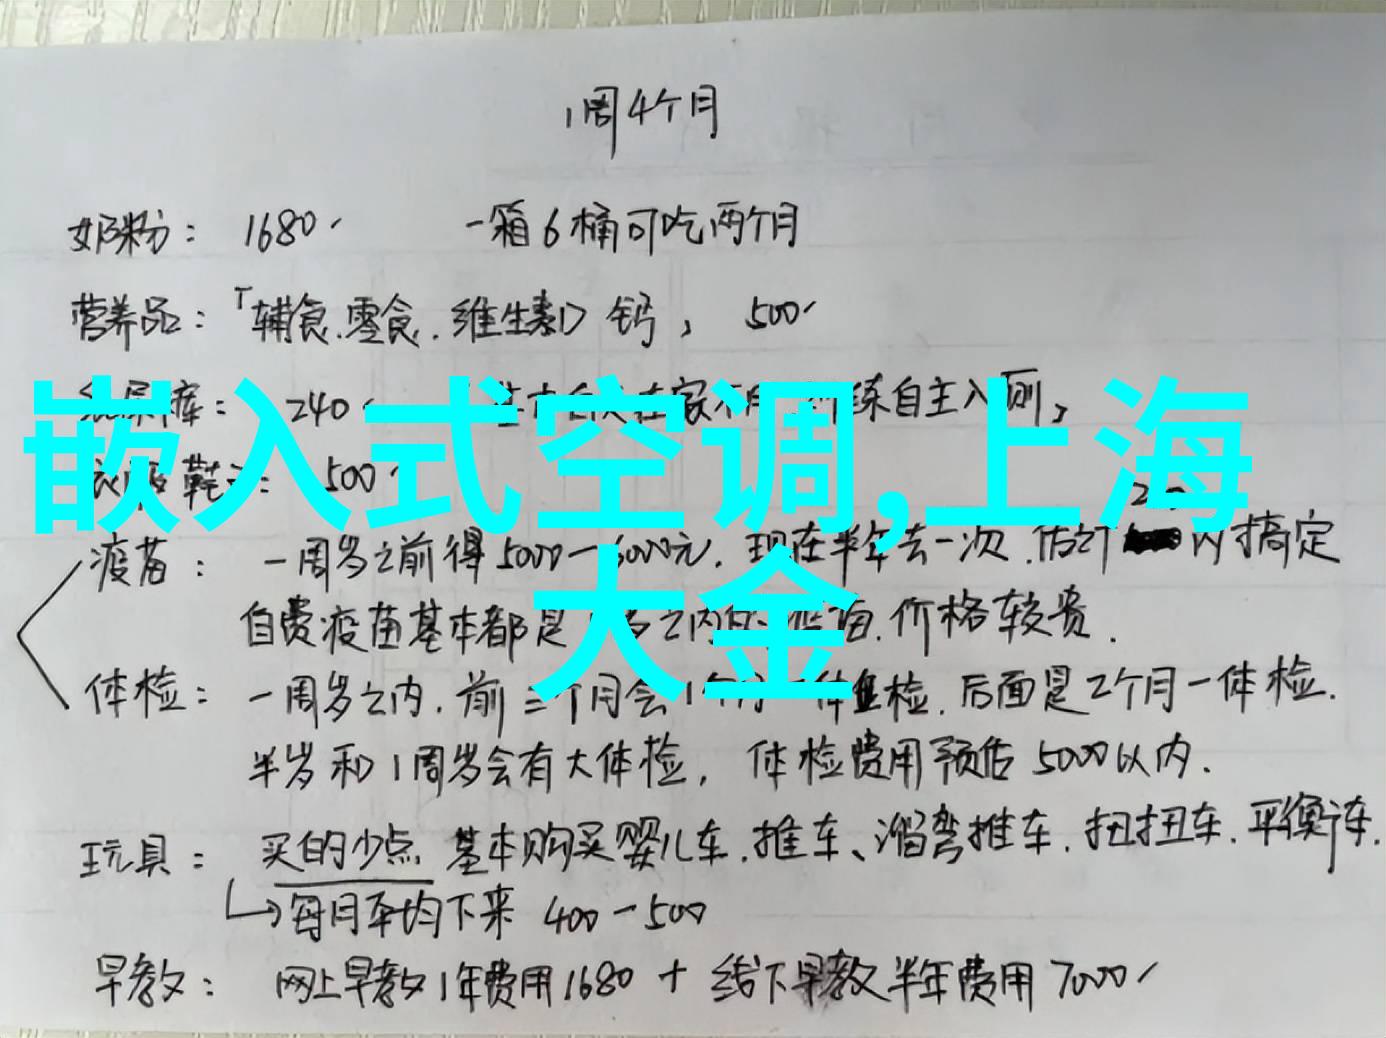 1周4个月
奶粉： 1680 一箱6桶可吃两个月
营养品：「辅食.零食.维生素D 钙， 500
240 自主入厕，
嵌入式空调,上海
鞋 500
大金
疫苗： 一周岁之前得5000-6000元. 现在半年去一次. 内搞定
自费疫苗基本都是 价格较贵.
体检： 一周岁之内. 前三个月会1个月一体检. 后面是2个月一体检.
半岁和1周岁会有大体检， 体检费用预估5000以内.
玩具： 买的少点 基本购买婴儿车.推车、溜弯推车.扭扭车.平衡车.
每月平均下来 400-500
早教： 网上早教1年费用1680 + 线下早教半年费用7000